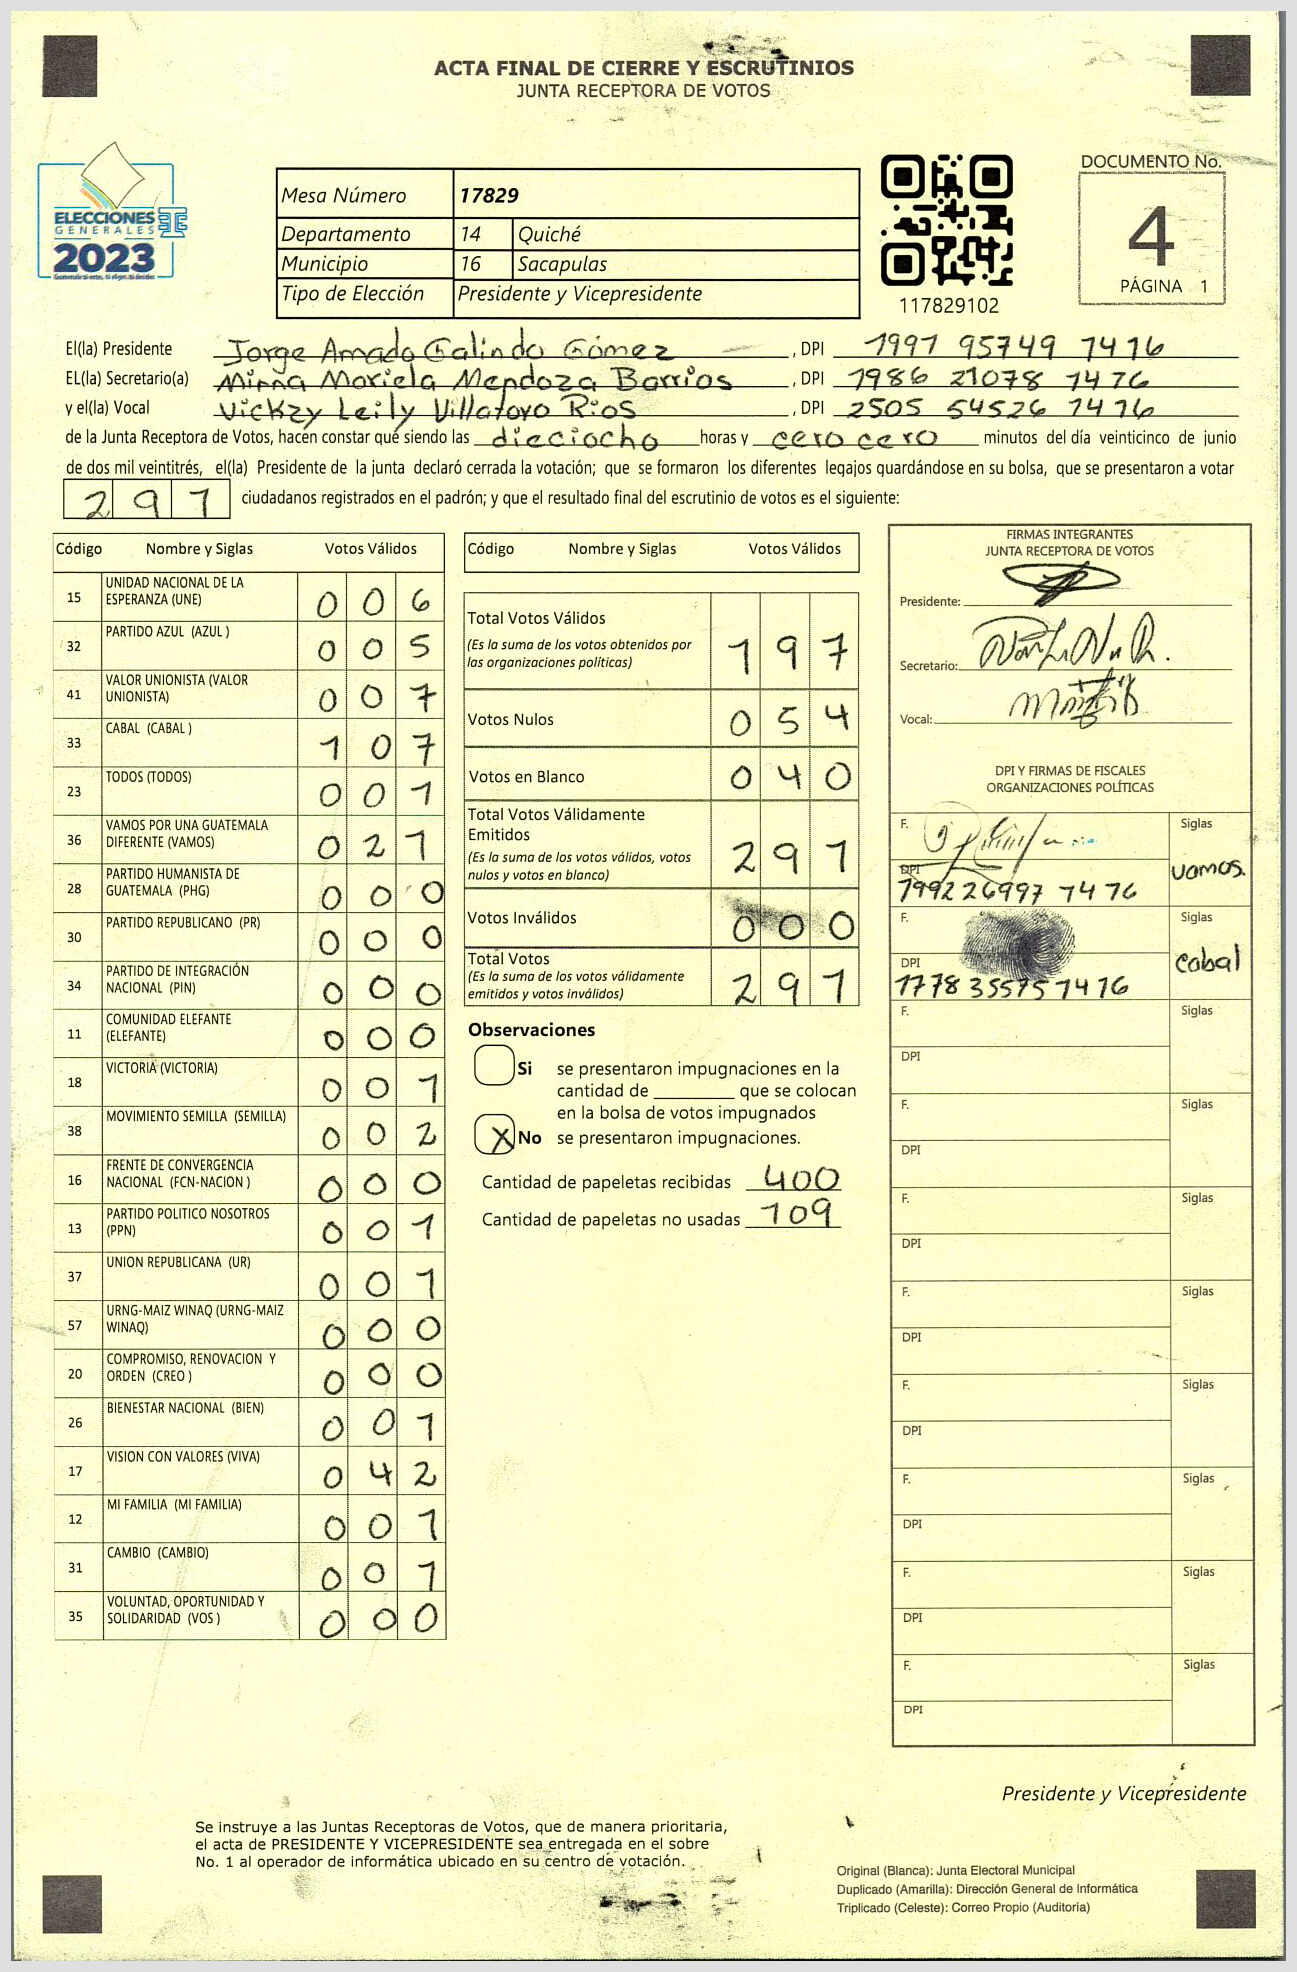 ACTA FINAL DE CIERRE Y ESCRUTINIOS
JUNTA RECEPTORA DE VOTOS
ELECCIONES
GENERALES
2023
Mesa Número 17829
Departamento 14 Quiché
Municipio 16 Sacapulas
Tipo de Elección Presidente y Vicepresidente
117829102
DOCUMENTO No.
4
PÁGINA 1
El(la) Presidente Jorge Amado Galindo Gómez, DPI 1991 95749 1416
EL(la) Secretario(a) Mirna Mariela Mendoza Barrios, DPI 1986 21078 1416
y el(la) Vocal Vickzy Leily Villatoro Rios, DPI 2505 54526 1416
de la Junta Receptora de Votos, hacen constar qué siendo las dieciocho horas y cero cero minutos del día veinticinco de junio
de dos mil veintitrés, el(la) Presidente de la junta declaró cerrada la votación; que se formaron los diferentes legajos guardándose en su bolsa, que se presentaron a votar
291 ciudadanos registrados en el padrón; y que el resultado final del escrutinio de votos es el siguiente:
Código Nombre y Siglas Votos Válidos
15 UNIDAD NACIONAL DE LA ESPERANZA (UNE) 006
32 PARTIDO AZUL (AZUL ) 005
41 VALOR UNIONISTA (VALOR UNIONISTA) 007
33 CABAL (CABAL ) 107
23 TODOS (TODOS) 001
36 VAMOS POR UNA GUATEMALA DIFERENTE (VAMOS) 021
28 PARTIDO HUMANISTA DE GUATEMALA (PHG) 000
30 PARTIDO REPUBLICANO (PR) 000
34 PARTIDO DE INTEGRACIÓN NACIONAL (PIN) 000
11 COMUNIDAD ELEFANTE (ELEFANTE) 000
18 VICTORIA (VICTORIA) 001
38 MOVIMIENTO SEMILLA (SEMILLA) 002
16 FRENTE DE CONVERGENCIA NACIONAL (FCN-NACION ) 000
13 PARTIDO POLITICO NOSOTROS (PPN) 001
37 UNION REPUBLICANA (UR) 001
57 URNG-MAIZ WINAQ (URNG-MAIZ WINAQ) 000
20 COMPROMISO, RENOVACION Y ORDEN (CREO ) 000
26 BIENESTAR NACIONAL (BIEN) 001
17 VISION CON VALORES (VIVA) 042
12 MI FAMILIA (MI FAMILIA) 001
31 CAMBIO (CAMBIO) 001
35 VOLUNTAD, OPORTUNIDAD Y SOLIDARIDAD (VOS ) 000
Código Nombre y Siglas Votos Válidos
Total Votos Válidos 197
(Es la suma de los votos obtenidos por
las organizaciones políticas)
Votos Nulos 054
Votos en Blanco 040
Total Votos Válidamente
Emitidos 291
(Es la suma de los votos válidos, votos
nulos y votos en blanco)
Votos Inválidos 000
Total Votos 291
(Es la suma de los votos válidamente
emitidos y votos inválidos)
Observaciones
Si se presentaron impugnaciones en la
cantidad de ________ que se colocan
en la bolsa de votos impugnados
X No se presentaron impugnaciones.
Cantidad de papeletas recibidas 400
Cantidad de papeletas no usadas 109
FIRMAS INTEGRANTES
JUNTA RECEPTORA DE VOTOS
Presidente:
Secretario:
Vocal:
DPI Y FIRMAS DE FISCALES
ORGANIZACIONES POLÍTICAS
F. Siglas
DPI vamos.
1992 26997 1416
F. Siglas
DPI cabal
1778 35575 1416
F. Siglas
DPI
F. Siglas
DPI
F. Siglas
DPI
F. Siglas
DPI
F. Siglas
DPI
F. Siglas
DPI
F. Siglas
DPI
F. Siglas
DPI
Presidente y Vicepresidente
Se instruye a las Juntas Receptoras de Votos, que de manera prioritaria,
el acta de PRESIDENTE Y VICEPRESIDENTE sea entregada en el sobre
No. 1 al operador de informática ubicado en su centro de votación.
Original (Blanca): Junta Electoral Municipal
Duplicado (Amarilla): Dirección General de Informática
Triplicado (Celeste): Correo Propio (Auditoria)